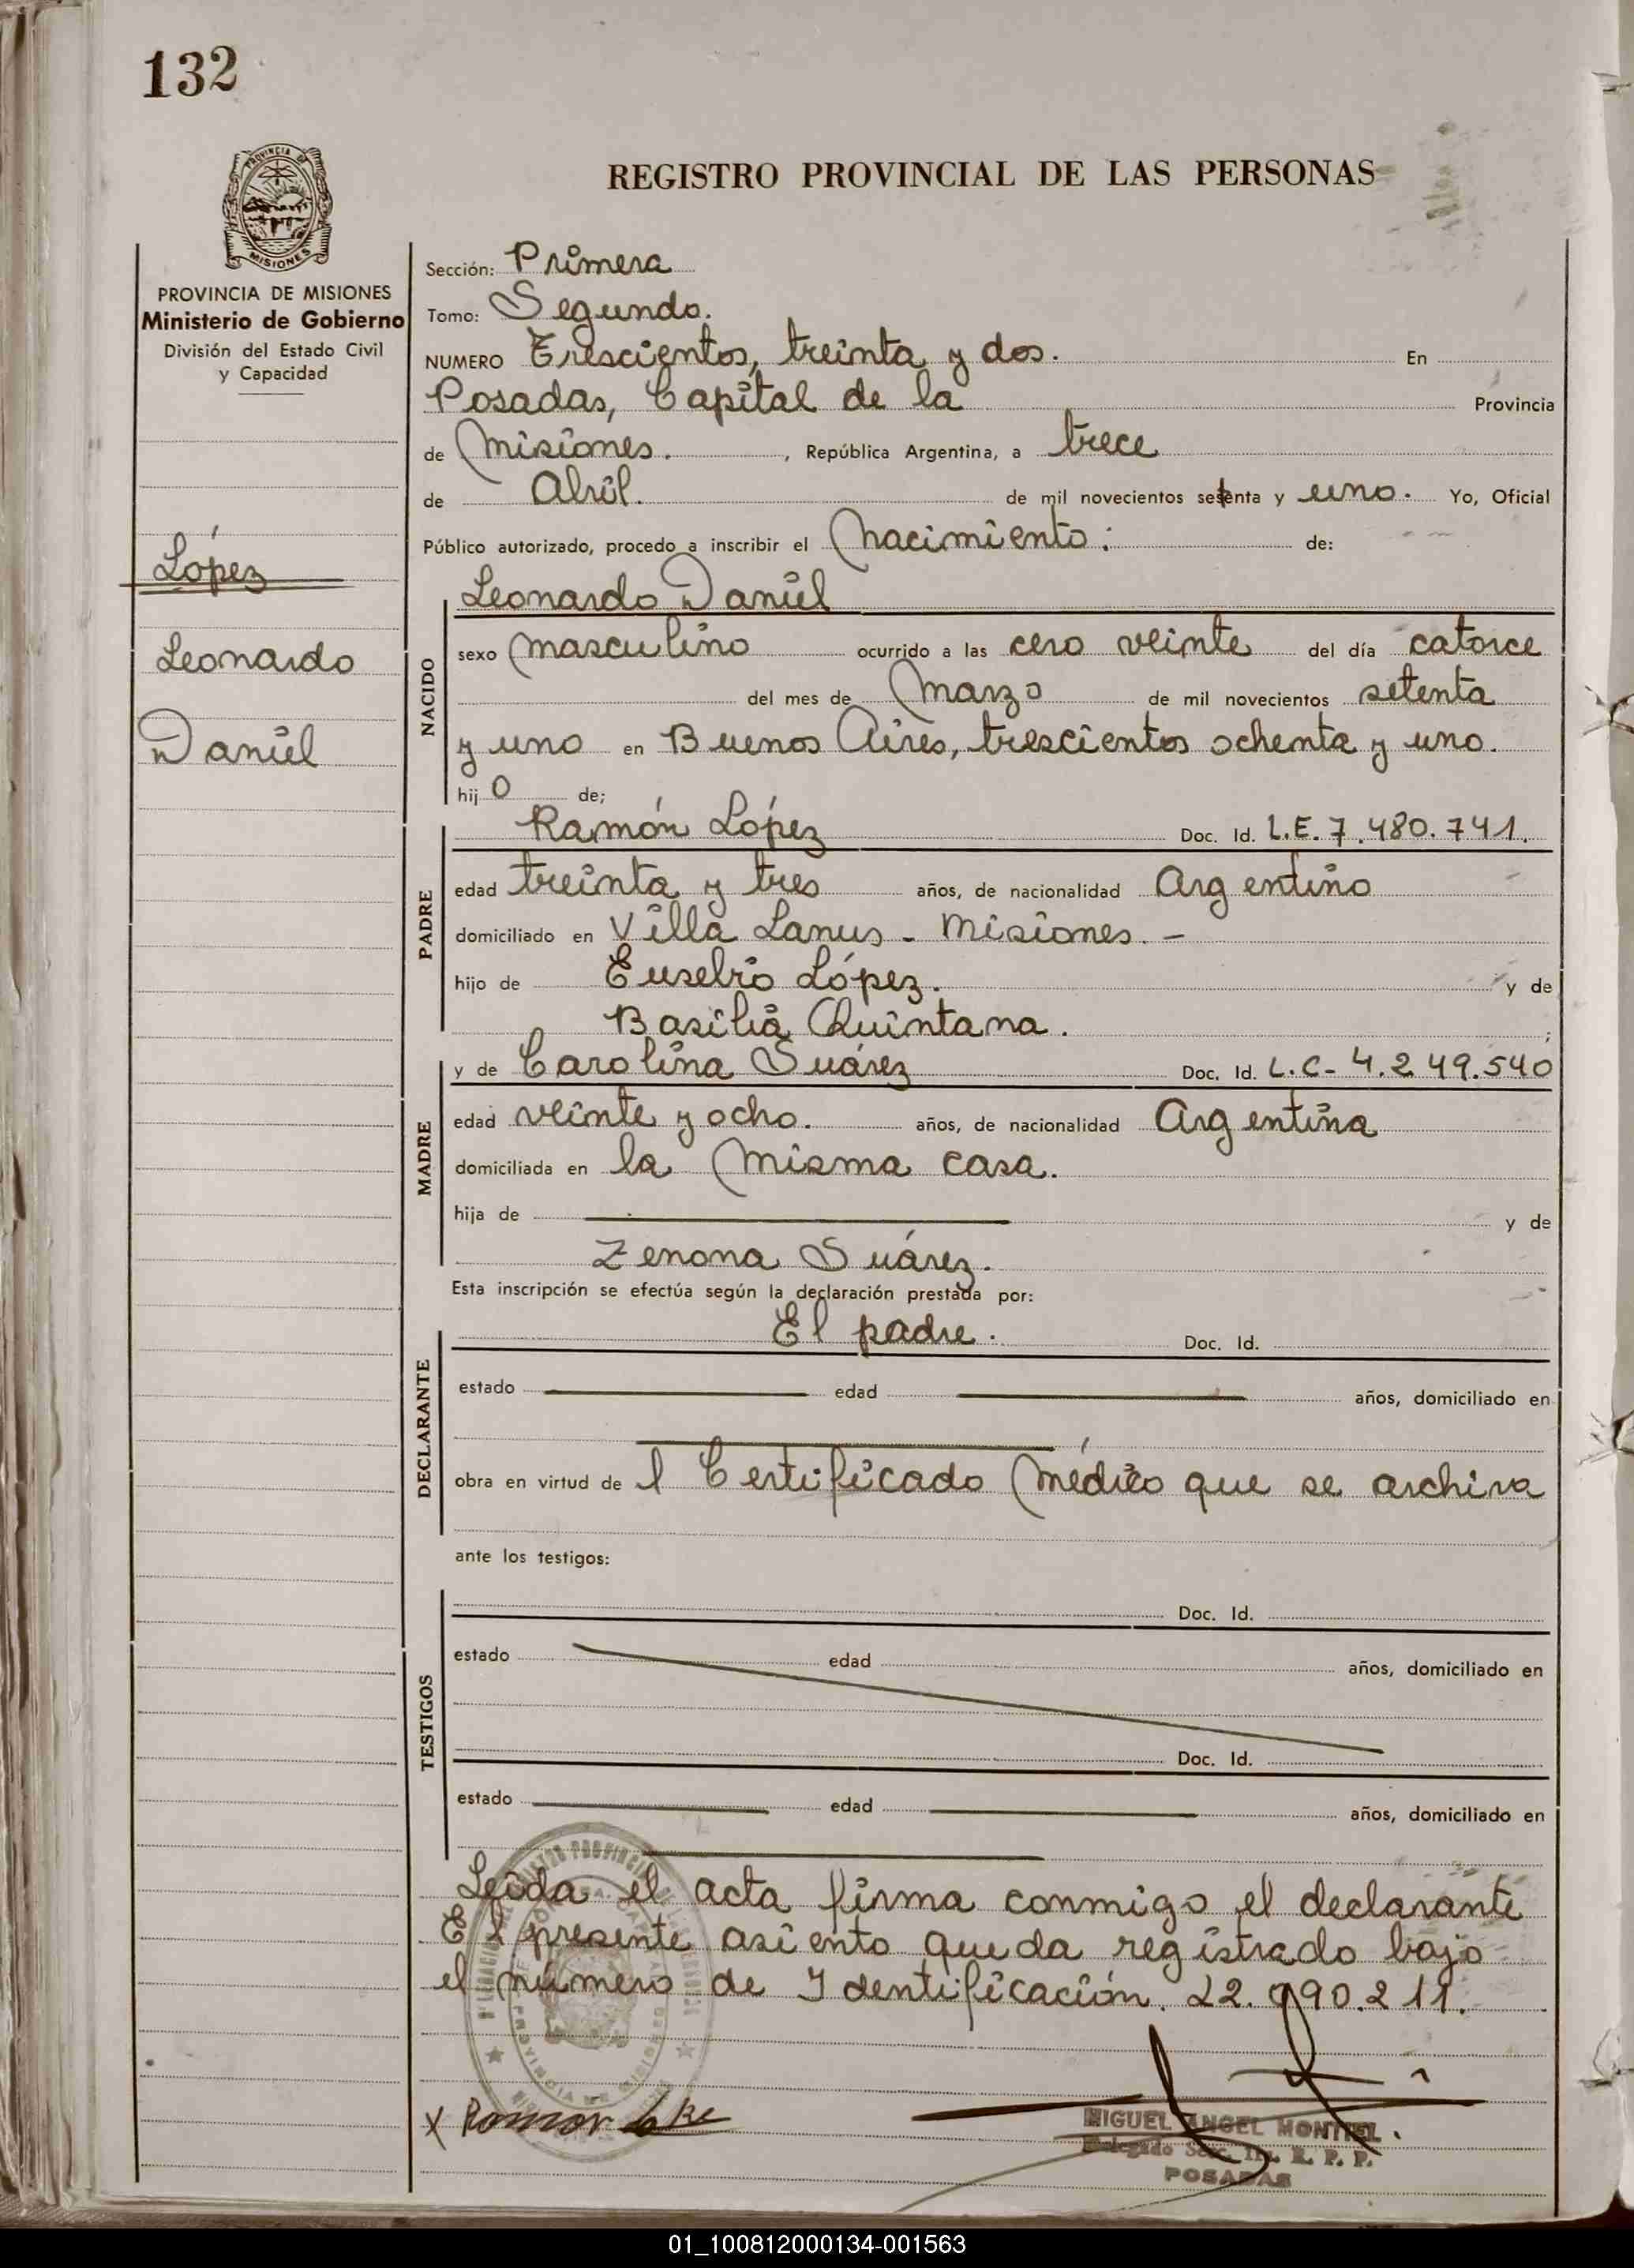 132
PROVINCIA DE MISIONES
MISIONES
PROVINCIA DE MISIONES
Ministerio de Gobierno
División del Estado Civil
y Capacidad
López
Leonardo
Daniel
REGISTRO PROVINCIAL DE LAS PERSONAS
Sección: Primera
Tomo: Segundo.
NUMERO Trescientos, treinta y dos. En
Posadas, Capital de la Provincia
de Misiones. , República Argentina, a trece
de Abril. de mil novecientos setenta y uno. Yo, Oficial
Público autorizado, procedo a inscribir el Nacimiento: de:
NACIDO
Leonardo Daniel
sexo masculino ocurrido a las cero veinte del día catorce
del mes de Marzo de mil novecientos setenta
y uno en Buenos Aires, trescientos ochenta y uno.
hij o de;
PADRE
Ramón López Doc. Id. L.E. 7.480.741.
edad treinta y tres años, de nacionalidad Argentino
domiciliado en Villa Lanus - Misiones. -
hijo de Eusebio López. y de
Basilia Quintana. ;
MADRE
y de Carolina Suárez Doc. Id. L.C- 4.249.540
edad veinte y ocho. años, de nacionalidad Argentina
domiciliada en la misma casa.
hija de y de
Zenona Suárez.
Esta inscripción se efectúa según la declaración prestada por:
DECLARANTE
El padre. Doc. Id.
estado edad años, domiciliado en
obra en virtud de l Certificado Médico que se archiva
ante los testigos:
TESTIGOS
Doc. Id.
estado edad años, domiciliado en
Doc. Id.
estado edad años, domiciliado en
Leída el acta firma conmigo el declarante
El presente asiento queda registrado bajo
el número de Identificación. 22.090.211.
x Ramon
MIGUEL ANGEL MONTIEL
Delegado Secc. R. P. P.
POSADAS
01_100812000134-001563